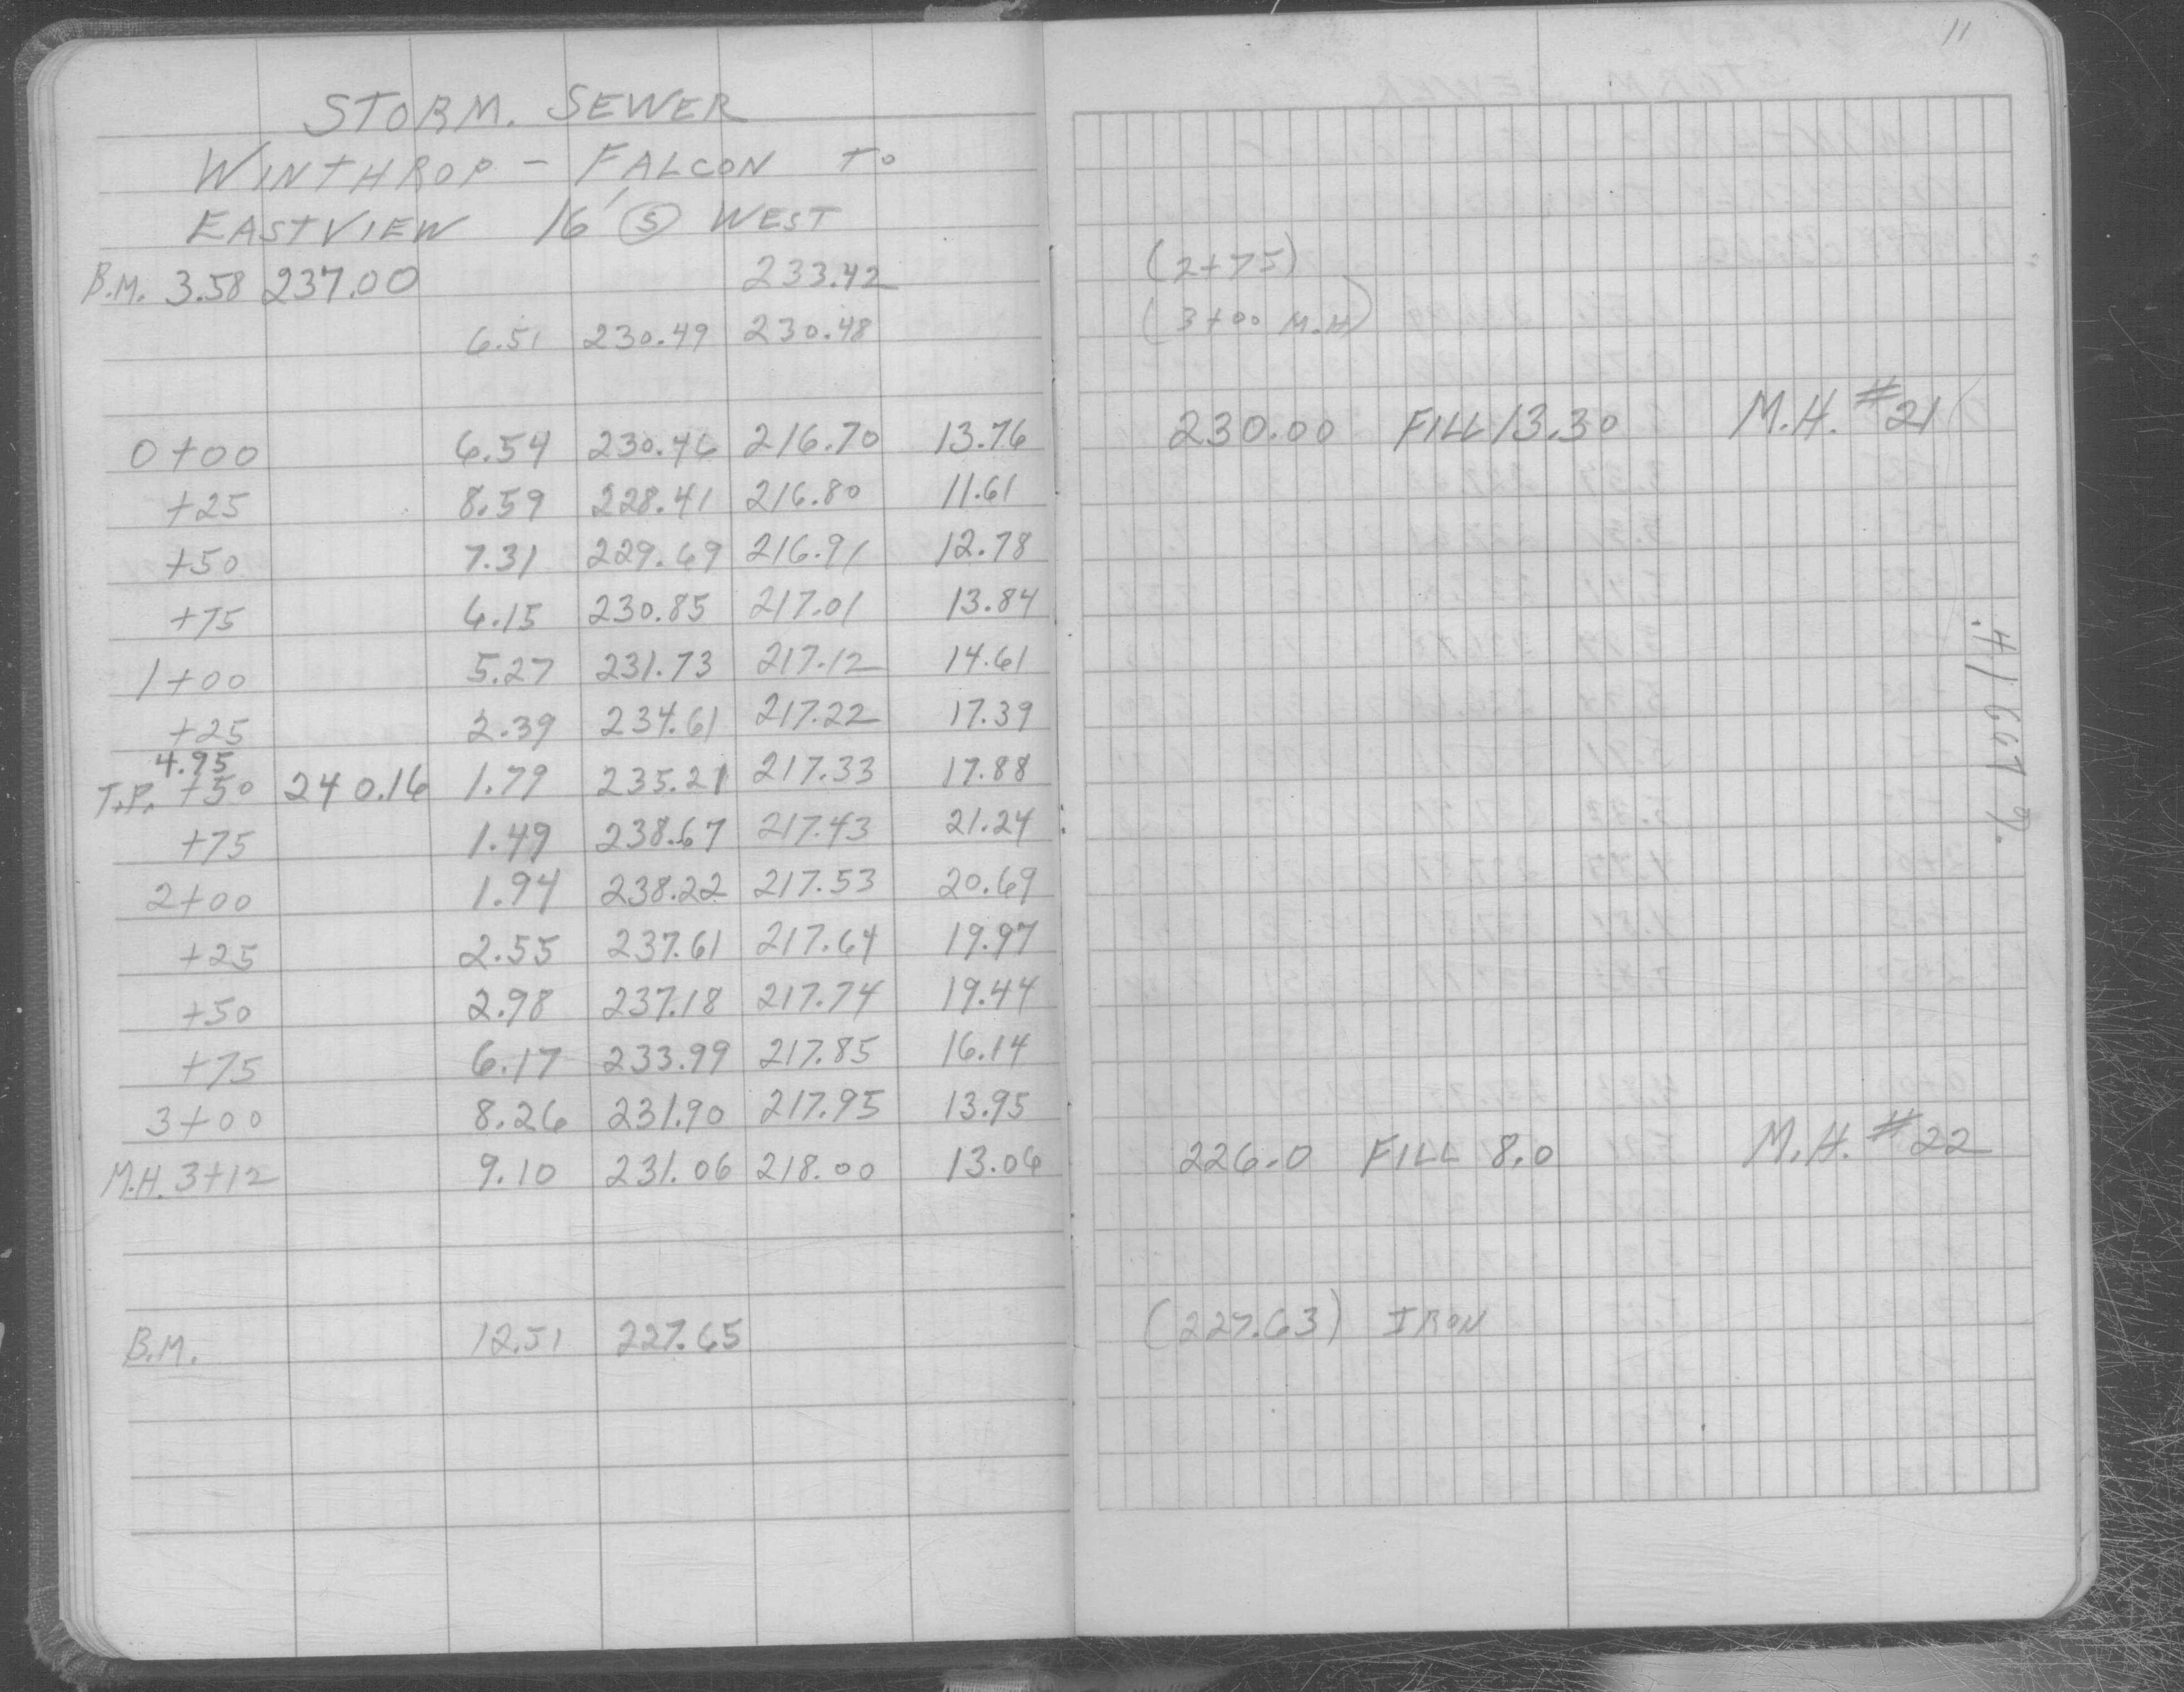 11
STORM. SEWER
WINTHROP - FALCON TO
EASTVIEW 16' Ⓢ WEST
B.M. 3.58 237.00 233.42 (2+75)
6.51 230.49 230.48 (3+00 M.H)
0+00 6.54 230.46 216.70 13.76 230.00 FILL 13.30 M.H. #21
+25 8.59 228.41 216.80 11.61
+50 7.31 229.69 216.91 12.78
+75 6.15 230.85 217.01 13.84
1+00 5.27 231.73 217.12 14.61
+25 2.39 234.61 217.22 17.39
4.95
T.P. +50 240.16 1.79 235.21 217.33 17.88
+75 1.49 238.67 217.43 21.24
2+00 1.94 238.22 217.53 20.69
+25 2.55 237.61 217.64 19.97
+50 2.98 237.18 217.74 19.44
+75 6.17 233.99 217.85 16.14
3+00 8.26 231.90 217.95 13.95
M.H. 3+12 9.10 231.06 218.00 13.06 226.0 FILL 8.0 M.H. #22
B.M. 12.51 227.65 (227.63) IRON